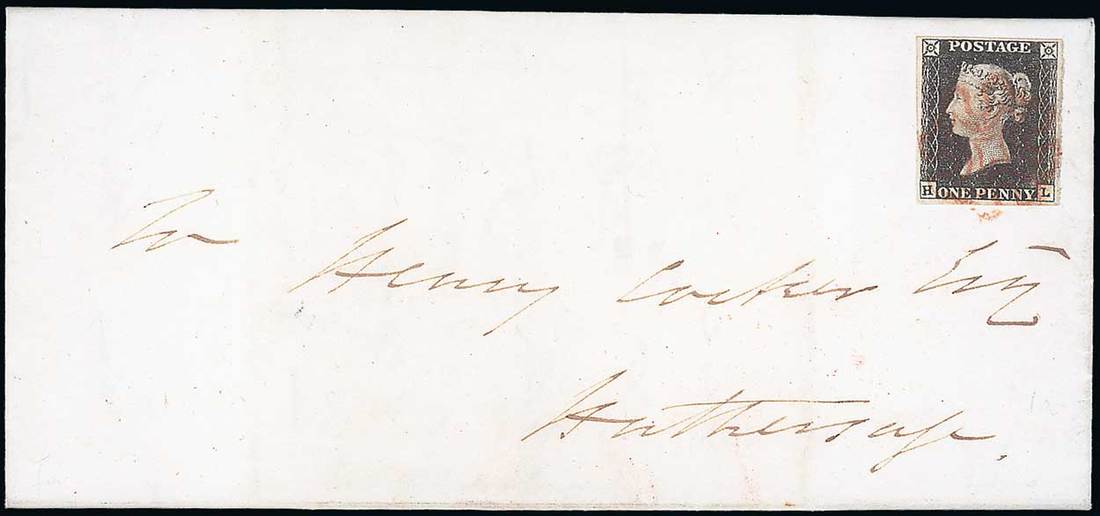 POSTAGE
H ONE PENNY L
To
Henry Cocker Esq
Hathersage.